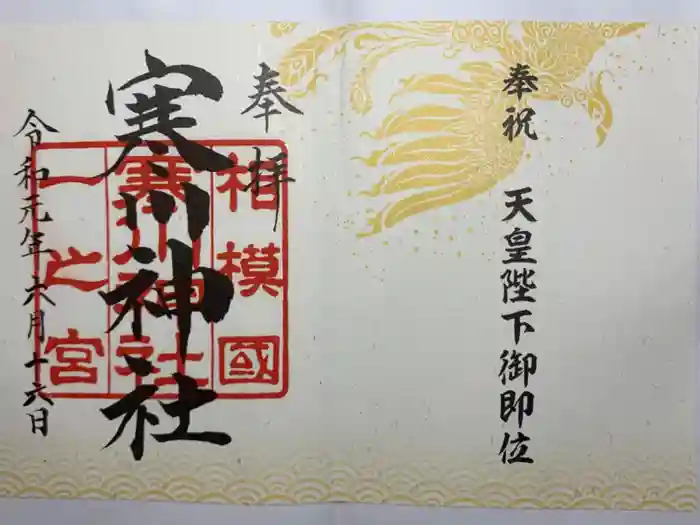 奉祝　天皇陛下御即位
奉拝
相模國
寒川神社
一之宮
寒川神社
令和元年六月十六日